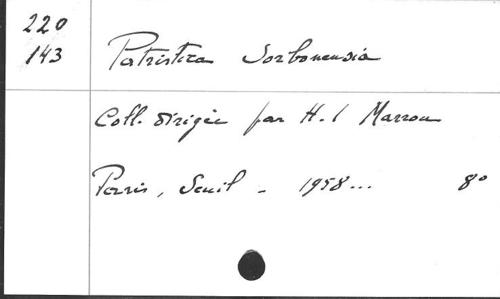 220
143
Patristica Sorbonensia
Coll. dirigée par H. I Marrou
Paris, Seuil - 1958... 8°